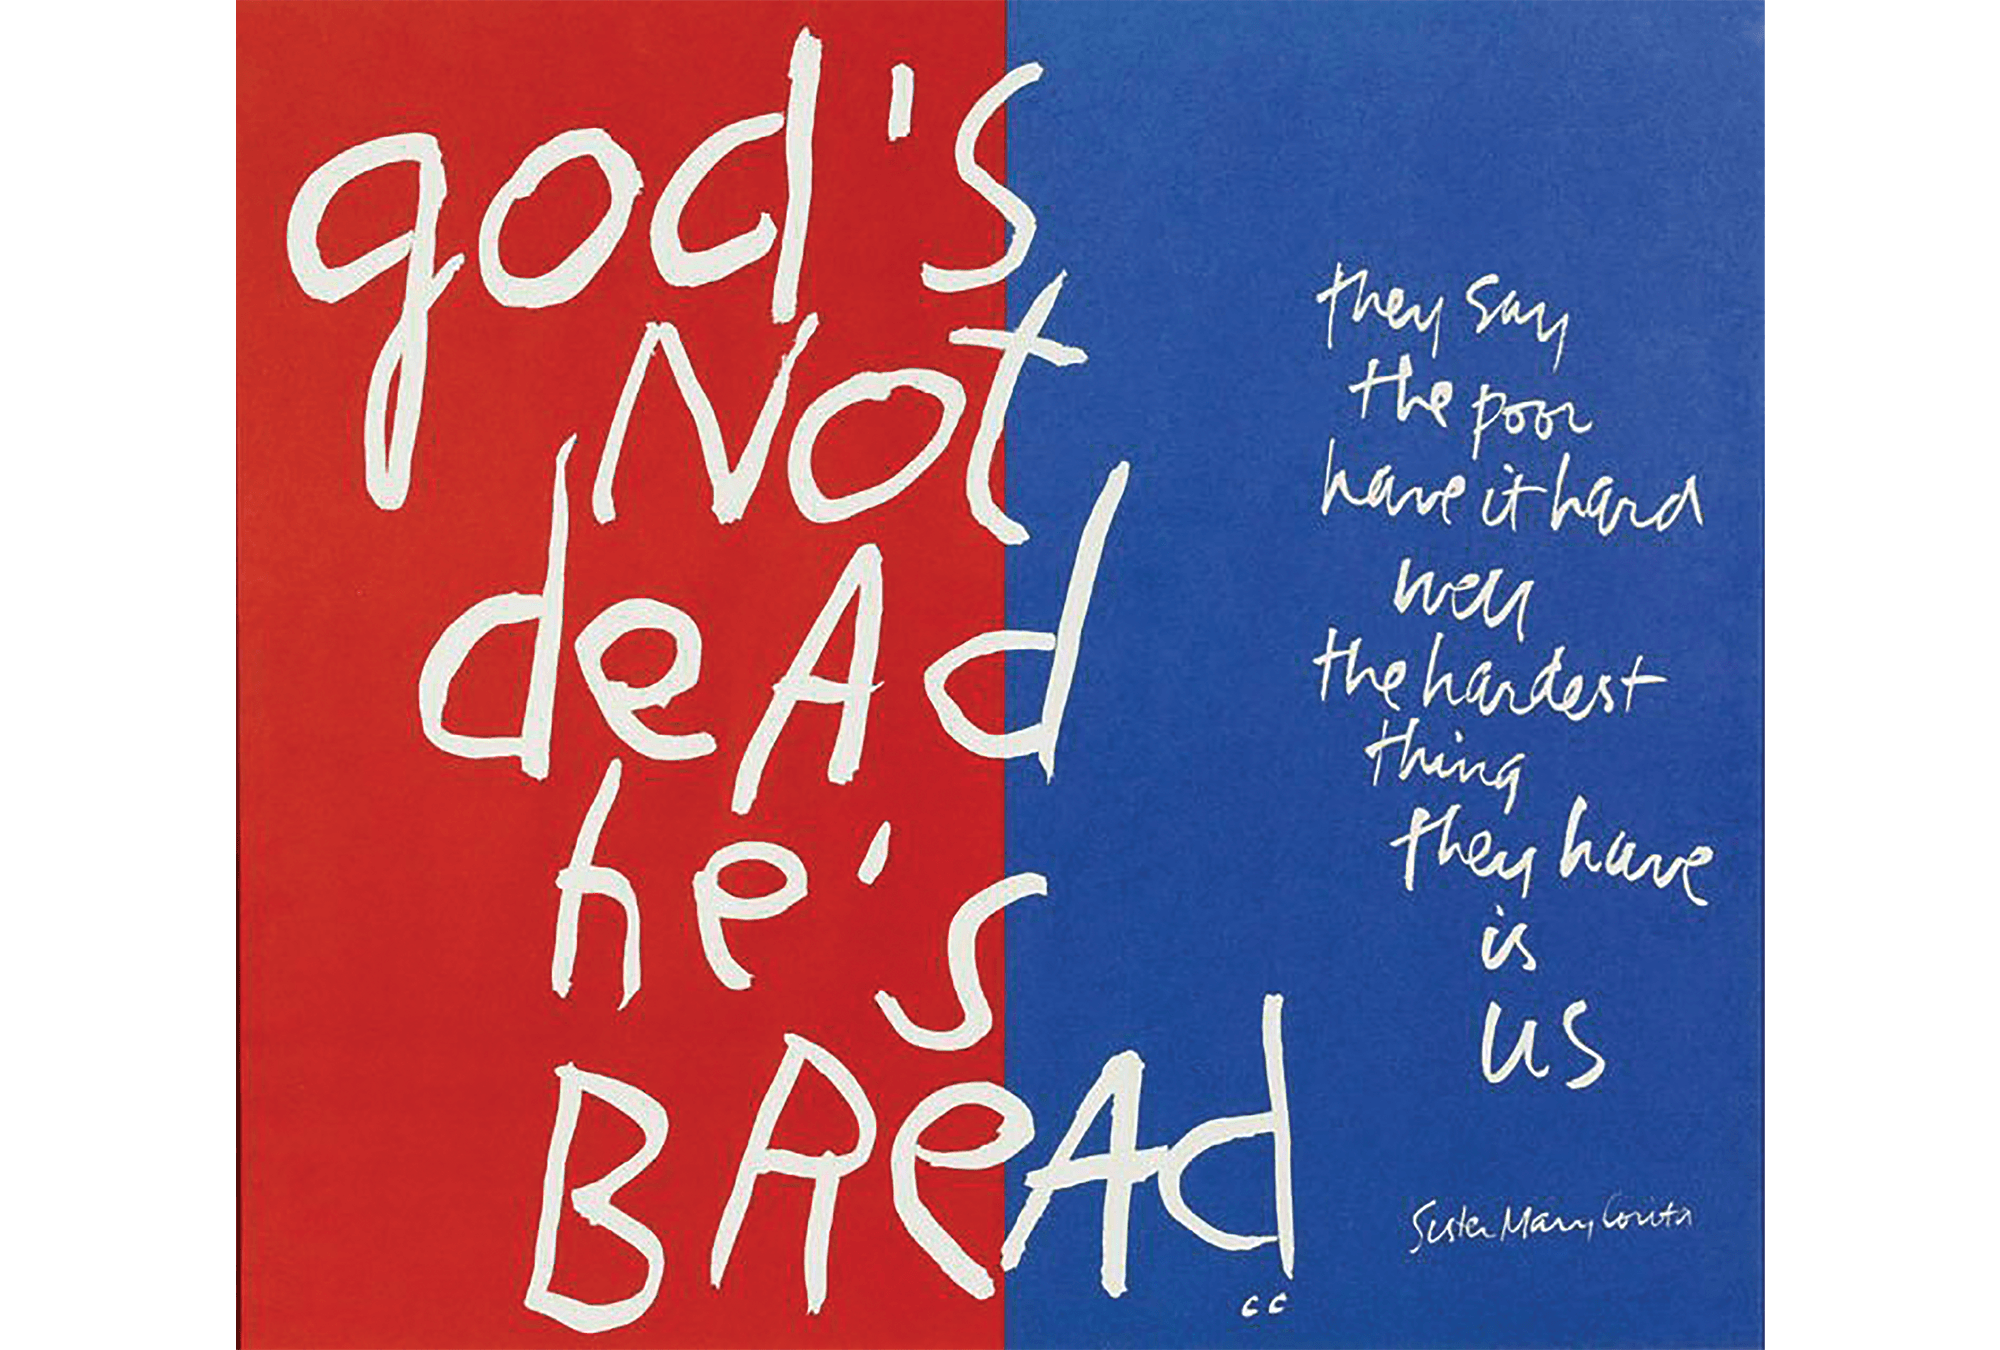 god's
Not
deAd
he's
BReAd
cc
they say
the poor
have it hard
well
the hardest
thing
they have
is
us
Sister Mary Corita